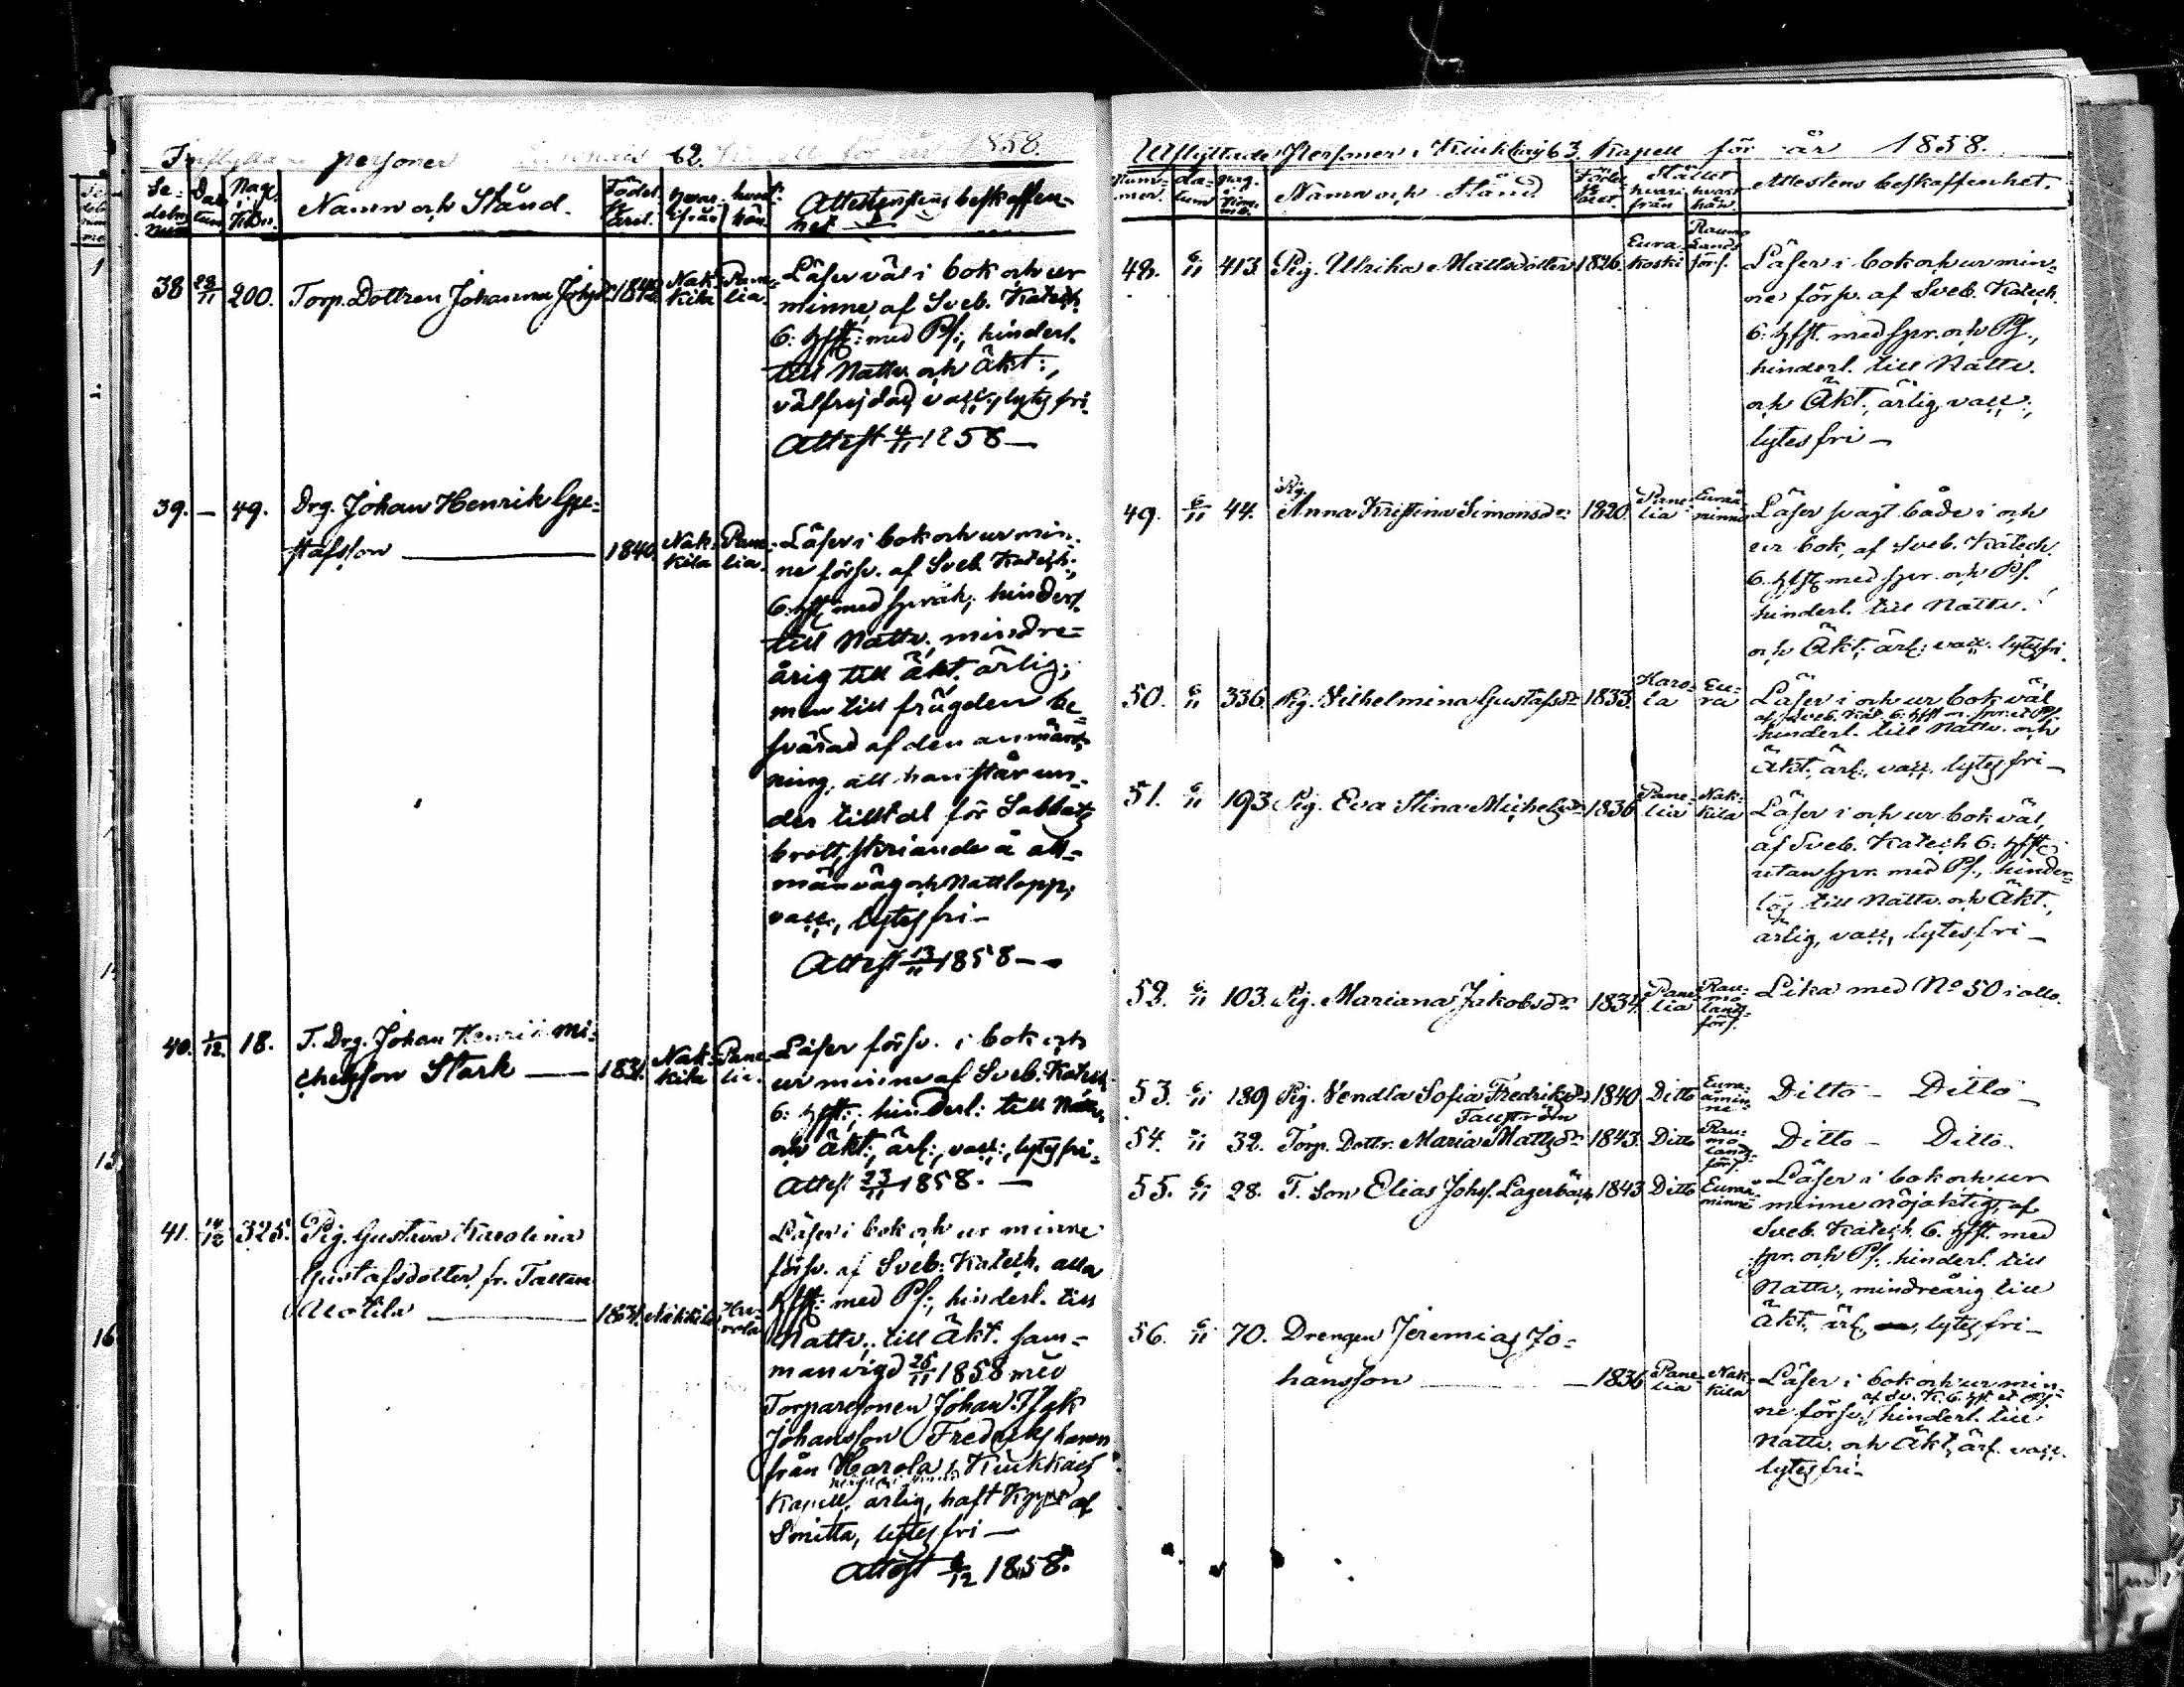 Inflyttade personer 62. Kapell för år 1858.
Sedelns Num
Datum
Pag. i Kbn.
Namn och Stånd.
Född år
hvar ifrån
hvart hän
Attesternas beskaffenhet
38 28/11 200. Torp. Dottren Johanna Johsdr 1842 Nakkila Panelia.
Läser väl i bok och ur
minne, af Sveb. Katech.
6: hfst: med Ps:, hinderl.
till Nattv. och Äkt:,
välfrejdad, vacc., lytesfri
Attest 4/11 1858 —
39. — 49. Drg. Johan Henrik Gu-
stafsson — 1840. Nakkila Panelia.
Läser i bok och ur min-
ne försv. af Sveb. Katech.,
6: hfst med språk; hinderl.
till Nattv., mindre-
årig till äkt. ärlig;
men till frägden be-
svärad af den anmärk-
ning, att han står un-
der tilltal för Sabbats
brott, skriande å all-
män väg och Nattlopp;
vacc., lytesfri —
Attest 13/11 1858 —
40. 1/12 18. T. Drg. Johan Henrik Mi-
chelsson Stark — 1831. Nakkila Panelia.
Läser försv. i bok och
ur minne af Sveb. Katech.
6: hfst:, hinderl: till Nattv.
och Äkt:, ärl:, vacc:, lytesfri.
Attest 23/11 1858. —
41. 14/12 325. Pig. Gustava Karolina
Gustafsdotter fr. Tattara
Anotila — 1831. Nakkila Harola
Läser i bok och ur minne
försv. af Sveb: Katech. alla
hfst: med Ps:, hinderl. till
Nattv., till Äkt. sam-
manvigd 25/11 1858 med
Torparesonen Johan Isak
Johansson Fredriks
från Harola i Kiukkais
Kapell, ärlig, haft Koppor af
Smitta, lytesfri —
Attest 6/12 1858.
Utflyttade Personer i Kiukkais 63. Kapell för år 1858.
Nummer.
datum
pag. i
Namn och Stånd
Födelse året.
Stället
hvarifrån
hvart hän.
Attestens beskaffenhet.
48. 6/11 413. Pig. Ulrika Mattsdotter 1826. Eurakoski Raumo Landsförs.
Läser i bok och ur min-
ne försv. af Sveb. Katech.
6: hfst. med spr. och Ps.,
hinderl. till Nattv.
och Äkt., ärlig, vacc:,
lytesfri —
49. 6/11 44. Pig. Anna Kristina Simonsdr 1820. Panelia Euraåminne
Läser svagt både i och
ur bok, af Sveb. Katech.
6. hfst. med spr. och Ps.
hinderl. till Nattv.
och Äkt. ärl: vacc. lytesfri.
50. 6/11 336. Pig. Vilhelmina Gustafsdr 1833. Harola Eura
Läser i och ur bok väl
af Sveb. Kat. 6: hfst m. spr. et Ps.
hinderl. till Nattv. och
Äkt. ärl:, vacc. lytesfri —
51. 6/11 193. Pig. Eva Stina Michelsdr 1836 Panelia Nakkila
Läser i och ur bok väl,
af Sveb. Katech 6: hfst:
utan spr. med Ps., hinder-
lös till Nattv. och Äkt.,
ärlig, vacc, lytesfri —
52. 6/11 103. Pig. Mariana Jakobsdr 1834. Panelia Raumo landsförs.
Lika med No 50 i allo.
53. 6/11 189 Pig. Vendla Sofia Fredriksdr 1840. Ditto Euraåminne Ditto — Ditto —
Tallström
54. 6/11 32. Torp. Dottr. Maria Mattsdr 1843. Ditto Raumo landsförs. Ditto — Ditto.
55. 6/11 28. T. Son Elias Johs. Lagerbäck 1843 Ditto Euraåminne
Läser i bok och ur
minne nöjaktigt, af
Sveb. Katech. 6. hfst. med
spr. och Ps., hinderl. till
Nattv., mindreårig till
Äkt. ärl, lytesfri —
56. 6/11 70. Drengen Jeremias Jo-
hansson — 1836 Panelia Nakkila
Läser i bok och ur min-
af Sv. K. 6 hfst et Ps.
ne försv. hinderl. till
Nattv. och Äkt, ärl. vacc.
lytesfri —